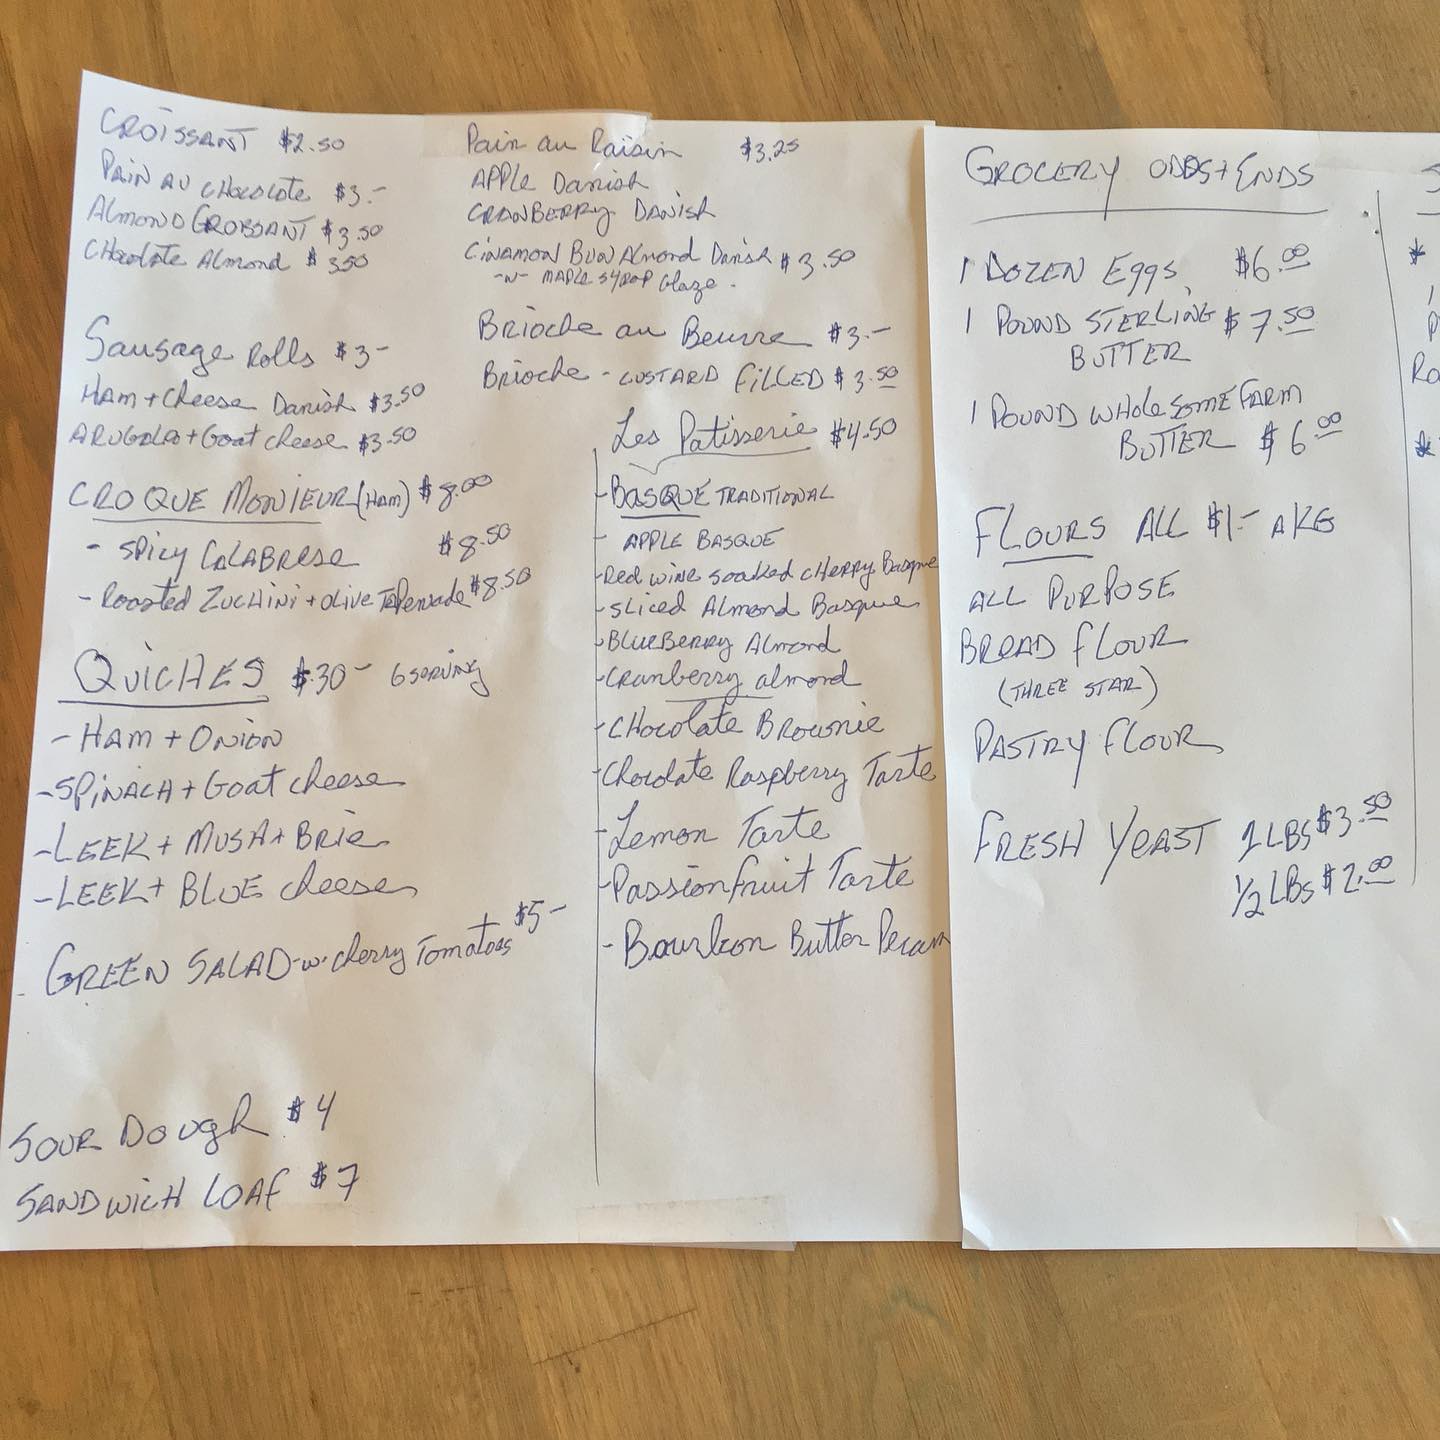 CROISSANT $2.50
PAIN AU CHOCOLATE $3-
ALMOND CROISSANT $3.50
CHocolate Almond $3.50
Sausage Rolls $3-
HAM + Cheese Danish $3.50
ARUGALA + Goat cheese $3.50
CROQUE MONIEUR (HAM) $8.00
- SPICY CALABRESE $8.50
- Roasted ZUCHINI + OLIVE TAPENADE $8.50
QUICHES $30- 6 SERVING
- HAM + ONION
- SPINACH + Goat cheese
- LEEK + MUSH + Brie
- LEEK + BLUE cheese
GREEN SALAD -w- cherry Tomatoes $5-
SOUR DOUGH $4
SANDWICH LOAF $7
Pain au Raisin $3.25
APPLE Danish
CRANBERRY DANISH
CINAMON BUN Almond Danish $3.50
-w- MAPLE SYROP Glaze -
Brioche au Beurre $3-
Brioche - CUSTARD FILLED $3.50
Les Patisserie $4.50
- BASQUE TRADITIONAL
- APPLE BASQUE
- Red wine soaked CHERRY Basque
- Sliced Almond Basque
- BLUEBERRY Almond
- Cranberry almond
- CHOcolate Brownie
- Chocolate Raspberry Tarte
- Lemon Tarte
- Passionfruit Tarte
- Bourbon Butter Pecan
GROCERY ODDS + ENDS
1 DOZEN EGGS $6.00
1 POUND STERLING $7.50
BUTTER
1 POUND WHOLESOME FARM
BUTTER $6.00
FLOURS ALL $1- A KG
ALL PURPOSE
BREAD FLOUR
(THREE STAR)
PASTRY FLOUR
FRESH YEAST 1 LBS $3.50
1/2 LBS $2.00